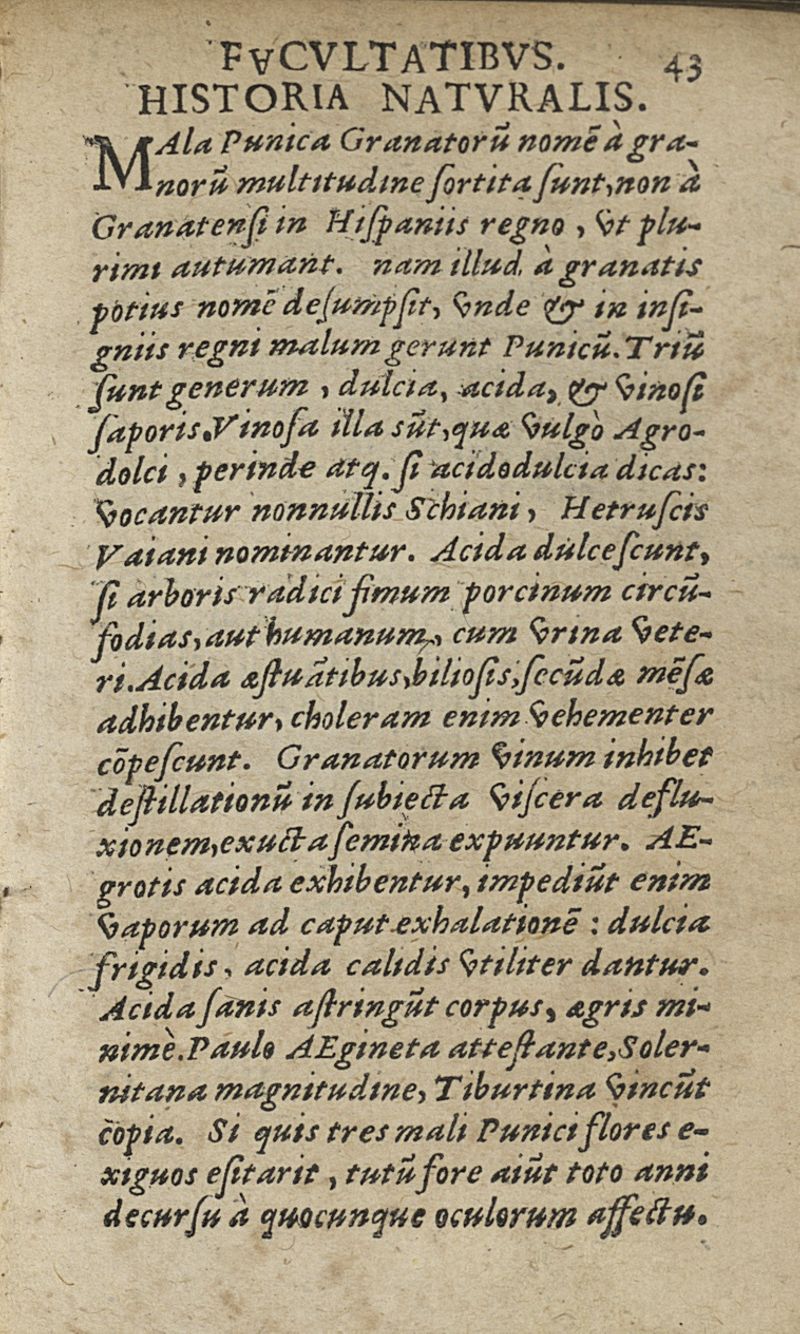 FACVLTATIBVS. 43
HISTORIA NATVRALIS.
MAla Punica Granatorũ nomẽ à gra-
norũ multitudine ſortita ſunt, non à
Granatenſi in Hiſpaniis regno, vt plu-
rimi autumant. nam illud à granatis
potius nomẽ deſumpſit, vnde & in inſi-
gniis regni malum gerunt Punicũ. Triũ
ſunt generum, dulcia, acida, & vinoſi
ſaporis. Vinoſa illa sũt, quæ vulgò Agro-
dolci, perinde atq. ſi acidodulcia dicas:
vocantur nonnullis Schiani, Hetruſcis
Vaiani nominantur. Acida dulceſcunt,
ſi arboris radici fimum porcinum circũ-
fodias, aut humanum, cum vrina vete-
ri. Acida æſtuãtibus, bilioſis, ſecũdæ mẽſæ
adhibentur, choleram enim vehementer
cõpeſcunt. Granatorum vinum inhibet
deſtillationũ in ſubiecta viſcera deflu-
xionem, exucta ſemina expuuntur. AE-
grotis acida exhibentur, impediũt enim
vaporum ad caput exhalationẽ : dulcia
frigidis, acida calidis vtiliter dantur.
Acida ſanis aſtringũt corpus, ægris mi-
nimè. Paulo AEgineta atteſtante, Soler-
nitana magnitudine, Tiburtina vincũt
copia. Si quis tres mali Punici flores e-
xiguos eſitarit, tutũ fore aiũt toto anni
decurſu à quocunque oculorum affectu.